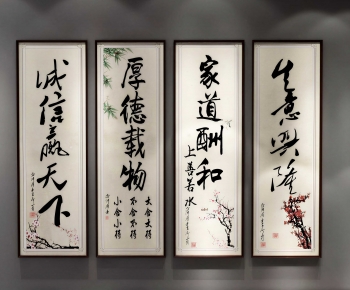 生意興隆
家道酬和
上善若水
厚德载物
大舍大得
不舍不得
小舍小得
诚信赢天下